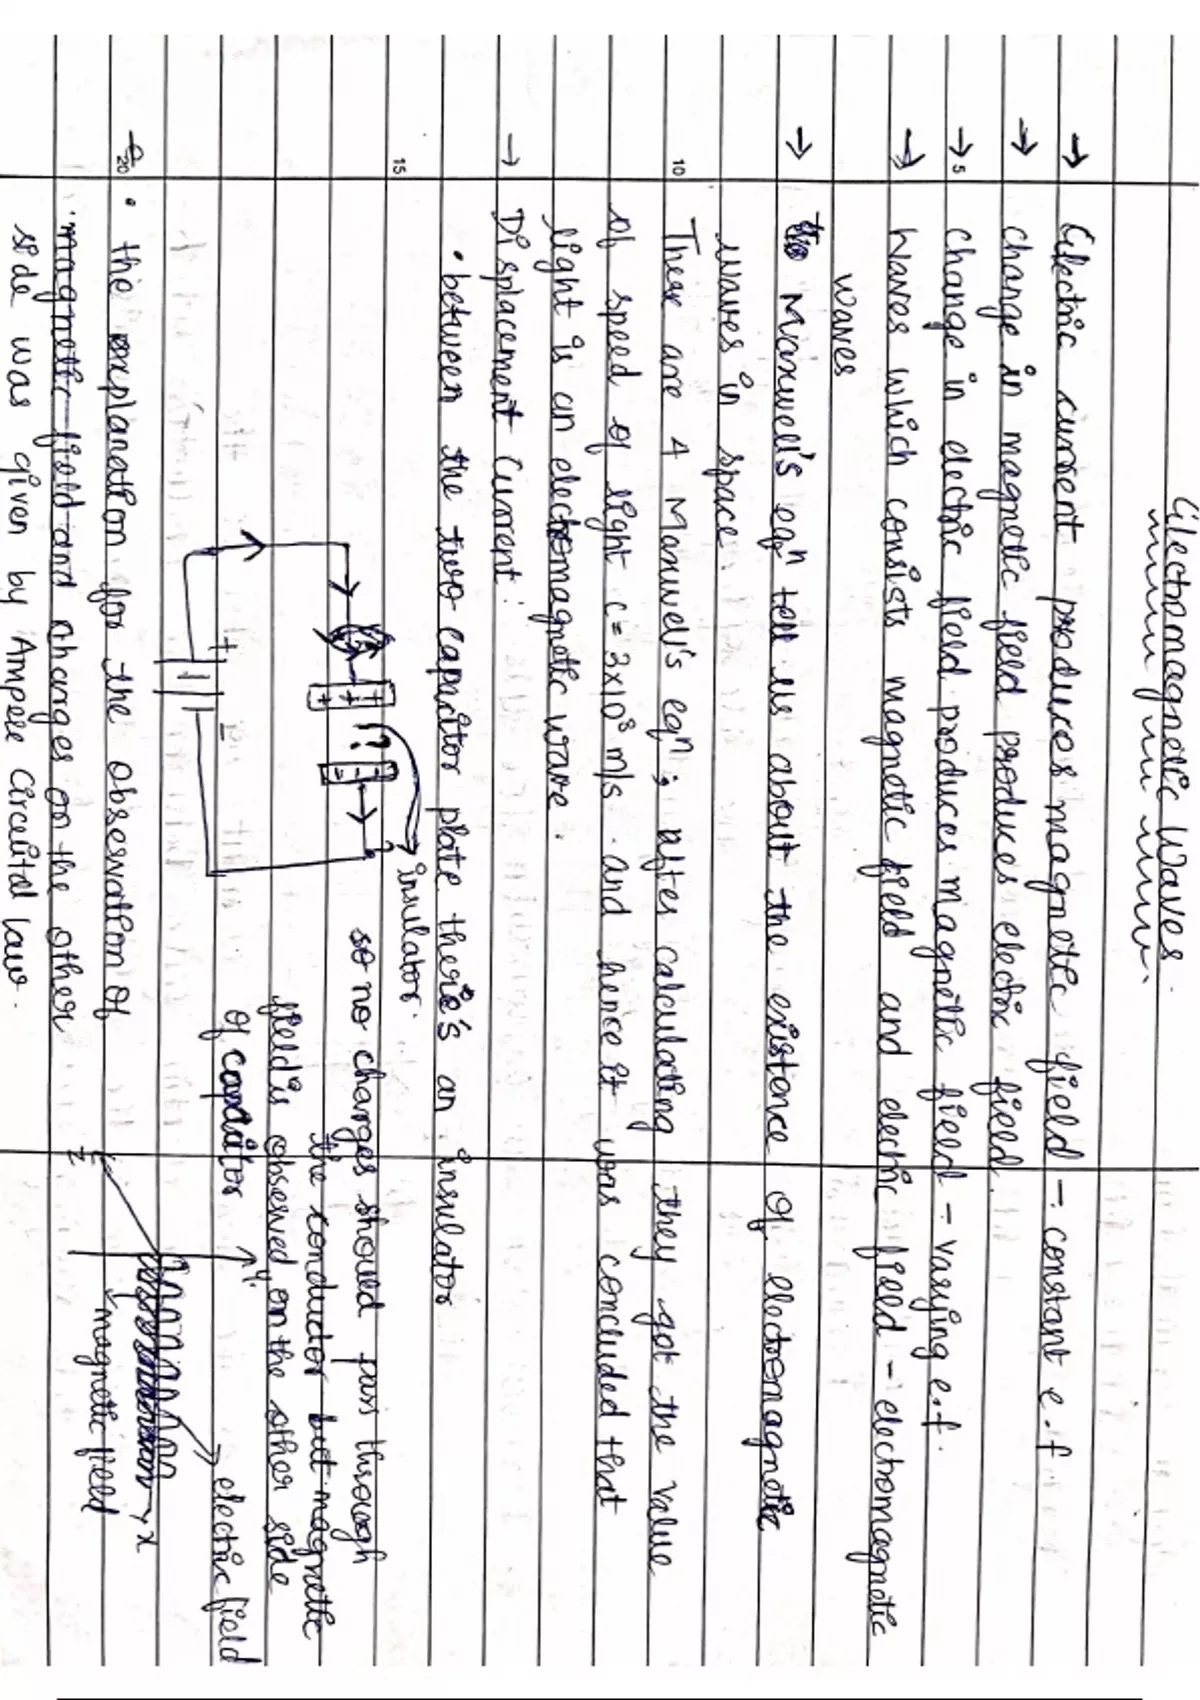 Electromagnetic Waves.
→ Electric current produces magnetic field - constant e.f
→ change in magnetic field produces electric field.
→ 5 change in electric field produces magnetic field - varying e.f.
→ waves which consists magnetic field and electric field - electromagnetic
waves
→ Maxwell's eqn tell us about the existence of electromagnetic
waves in space.
10 There are 4 Maxwell's eqn; after calculating they got the value
of speed of light c = 3x10⁸ m/s. and hence it was concluded that
light is an electromagnetic wave.
→ Displacement Current:
• between the two capacitor plate there's an insulator
15
insulator.
so no charges should run through
the conductor but magnetic
field is observed on the other side
of capacitor
+ -
+ + ? - -
y
electric field
x
magnetic field
z
20 • the explanation for the observation of
magnetic field and charges on the other
side was given by Ampere circuital law.